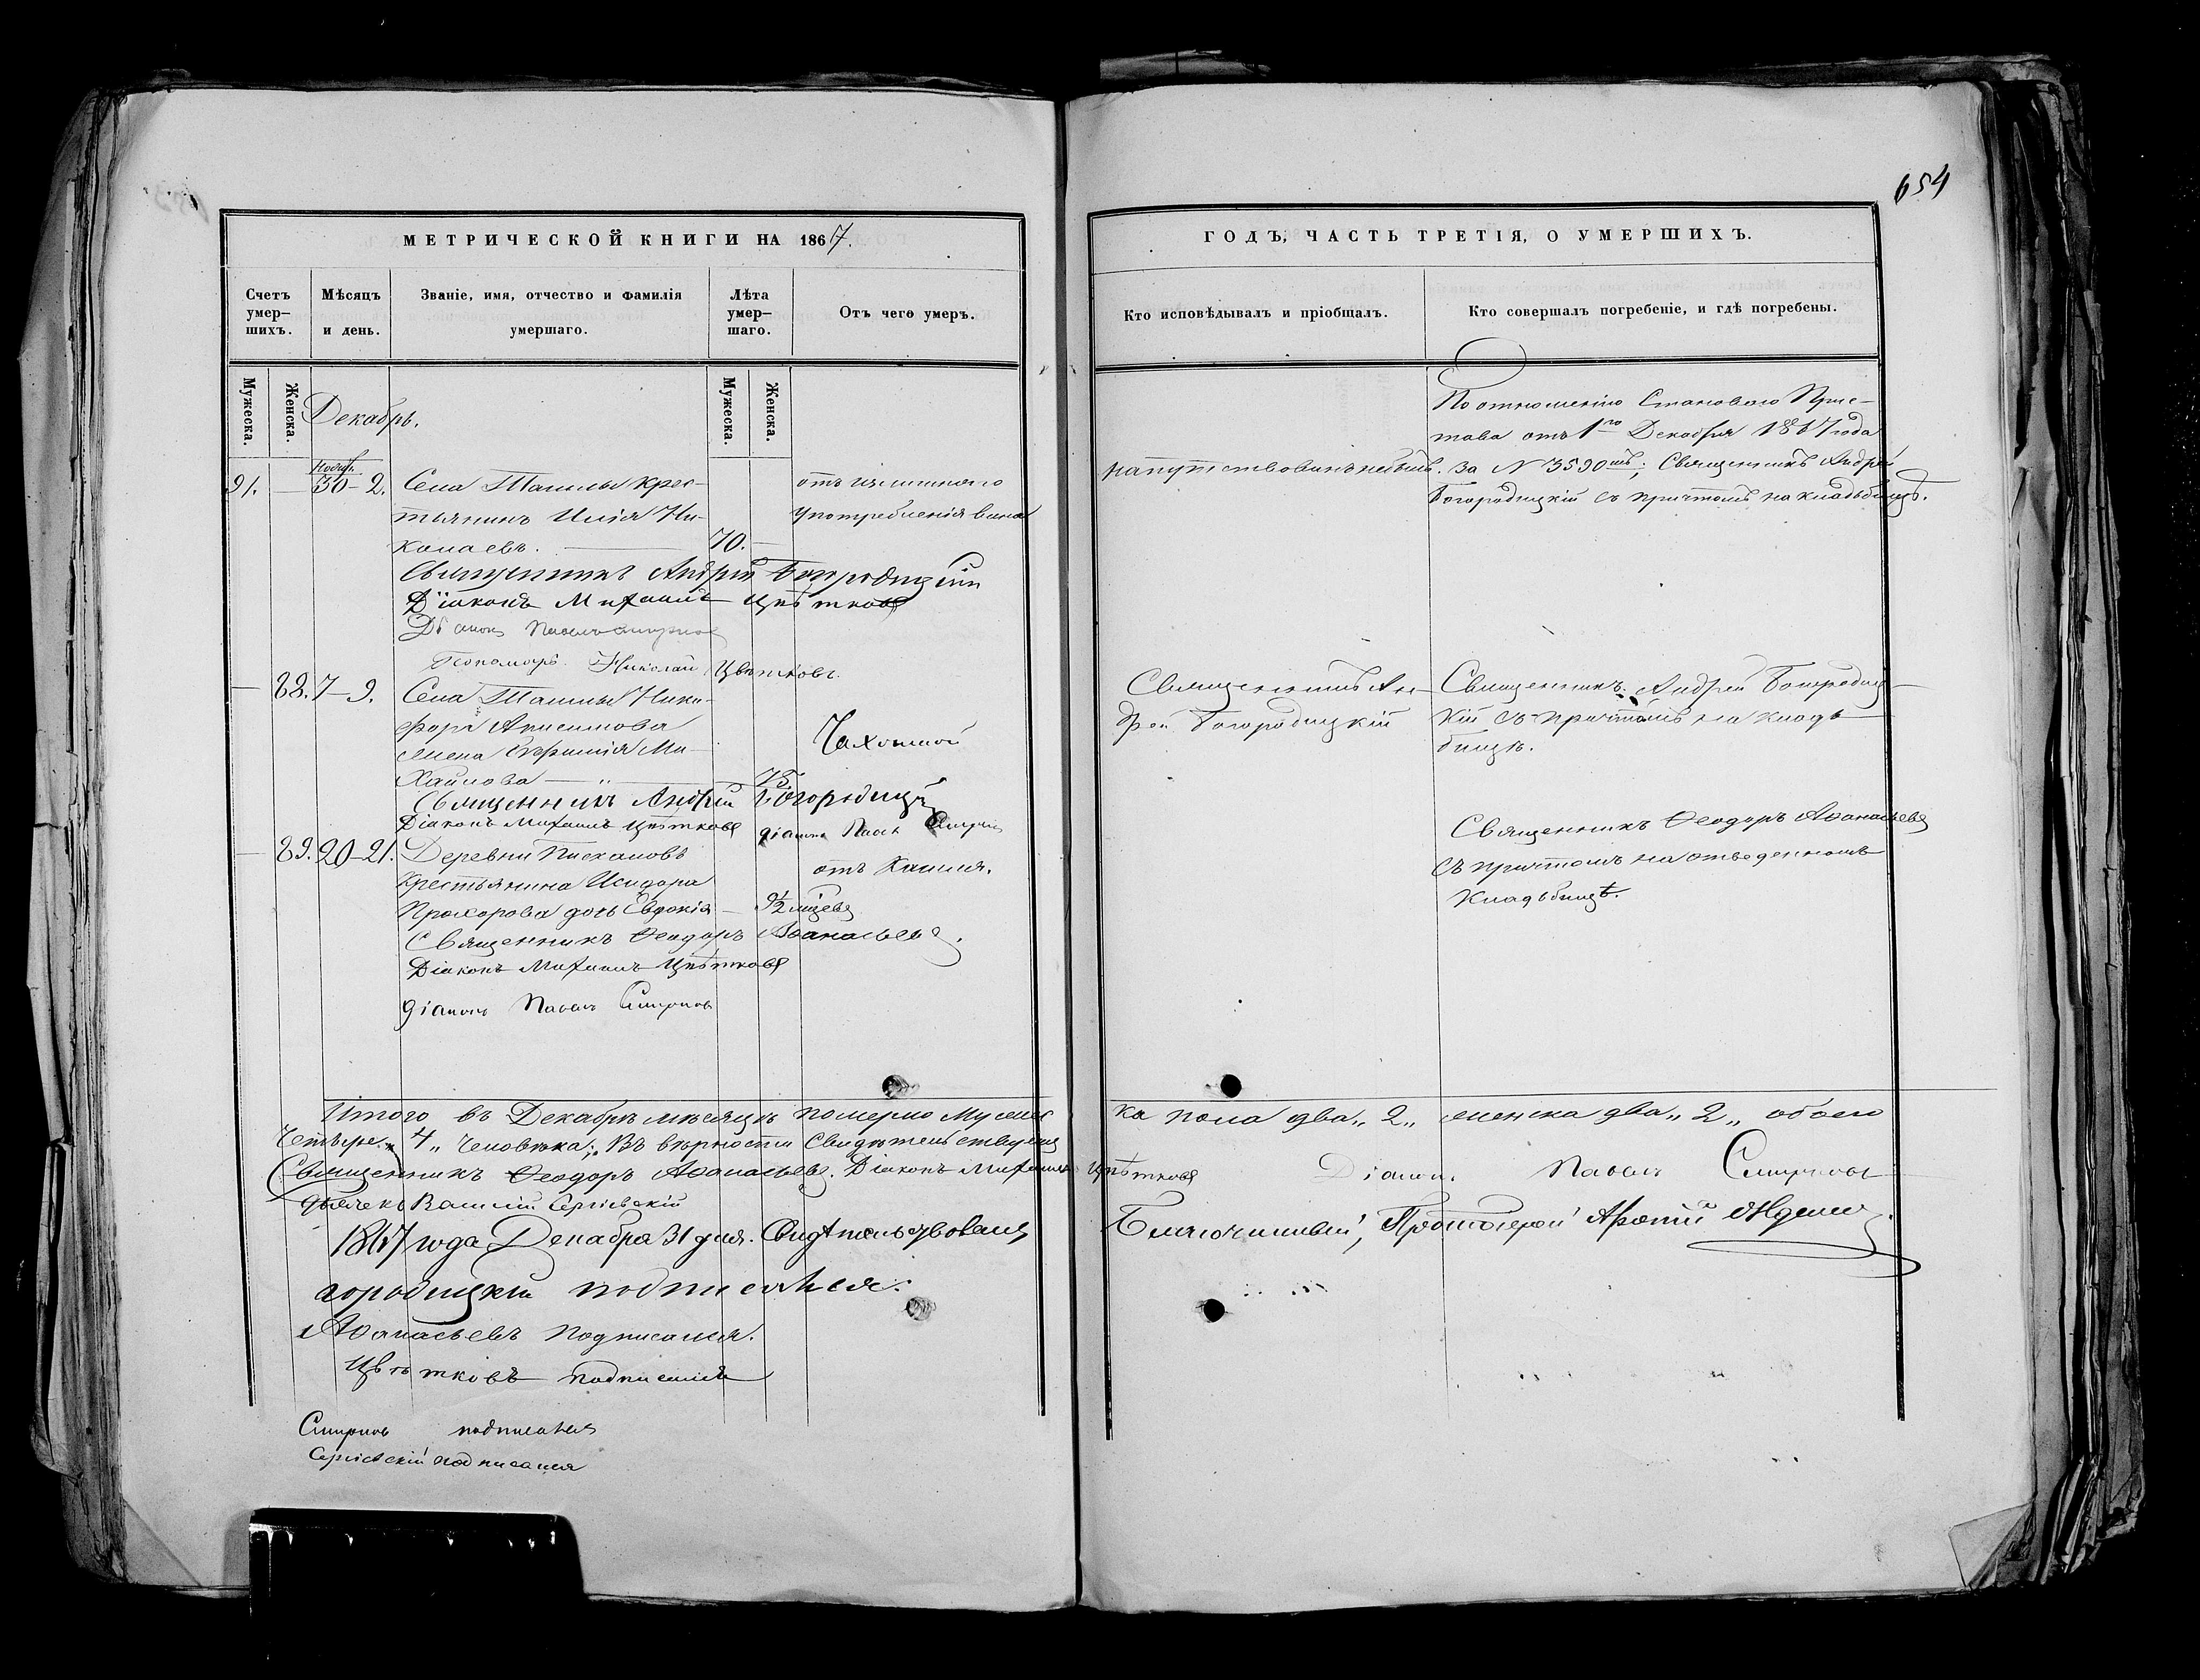 654
МЕТРИЧЕСКОЙ КНИГИ НА 1867.
Счетъ умер-шихъ.
Мѣсяцъ и день.
Званіе, имя, отчество и фамилія умершаго.
Лѣта умер-шаго.
Отъ чего умеръ.
Мужеска.
Женска.
Мужеска.
Женска.
Декабрь.
Нояб.
91. — 30-2. Села Ташлы крес-
тьянинъ Илія Ни-
колаевъ. — 70. —
отъ излишняго
употребленія вина
Священникъ Андрей Богородицкій
Діаконъ Михаилъ Цвѣтковъ
Діаконъ Павелъ Смирновъ
Пономарь Николай Цвѣтковъ.
— 88. 7-9. Села Ташлы Ники-
фора Анисимова
жена Евфимія Ми-
хайлова — 75.
Чахоткой
Священникъ Андрей Богородицкій
Діаконъ Михаилъ Цвѣтковъ діаконъ Павелъ Смирновъ
— 89. 20-21. Деревни Пискаловъ
отъ кашля.
крестьянина Исидора
Прохорова дочь Евдокія —
Священникъ Ѳеодоръ Аѳанасьевъ.
Діаконъ Михаилъ Цвѣтковъ
діаконъ Павелъ Смирновъ
ГОДЪ, ЧАСТЬ ТРЕТІЯ, О УМЕРШИХЪ.
Кто исповѣдывалъ и пріобщалъ.
Кто совершалъ погребеніе, и гдѣ погребены.
По отношенію Становаго Прис-
тава отъ 1го Декабря 1867 года
напутствованъ небылъ. за N 3590мъ; Священникъ Андрей
Богородицкій съ причтомъ на кладьбищѣ.
Священникъ Ан-
дрей Богородицкій
Священникъ Андрей Богородиц-
кій съ причтомъ на кладь-
бищѣ.
Священникъ Ѳеодоръ Аѳанасьевъ
съ причтомъ на отведенномъ
кладьбищѣ.
Итого въ Декабрѣ мѣсяцѣ померло мужес ка пола два „2„ женска два „2„ обоего
четыре „4„ человѣка; Въ вѣрности свидѣтельствуемъ
Священникъ Ѳеодоръ Аѳанасьевъ. Діаконъ Михаилъ Цвѣтковъ Діаконъ Павелъ Смирновъ
дьячекъ Василій Сергіевскій
1867 года Декабря 31 дня. Свидѣтельствовалъ Благочинный, Протоіерей
городицкій подписался.
Аѳанасьевъ подписался.
Цвѣтковъ подписался
Смирновъ подписался
Сергіевскій подписался